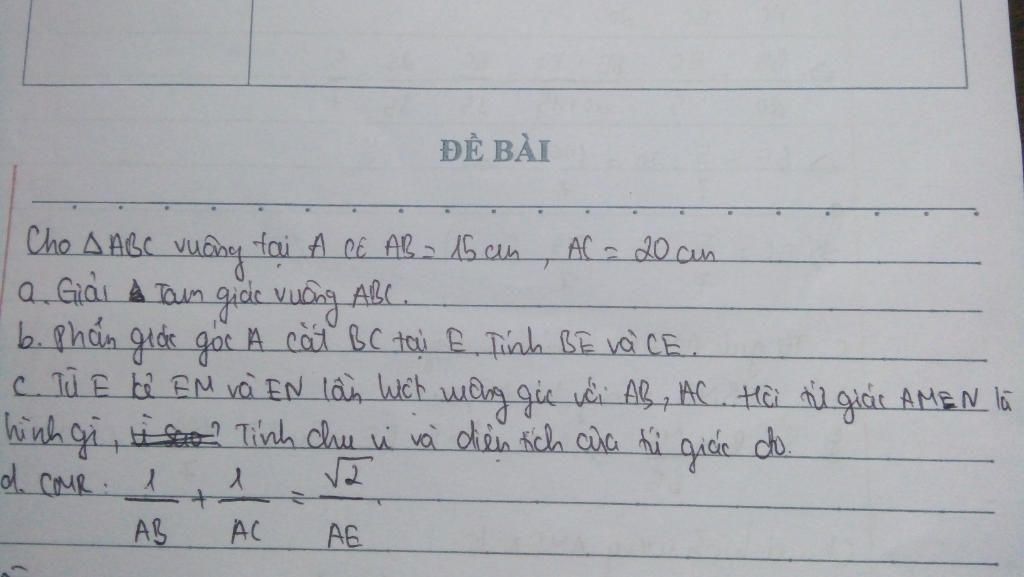 ĐỀ BÀI
Cho ΔABC vuông tại A có AB = 15 cm, AC = 20 cm
a. Giải Tam giác vuông ABC.
b. Phân giác góc A cắt BC tại E. Tính BE và CE.
c. Từ E kẻ EM và EN lần lượt vuông góc với AB, AC. Hỏi tứ giác AMEN là
hình gì, vì sao? Tính chu vi và diện tích của tứ giác đó.
d. CMR: 1/AB + 1/AC = √2/AE.